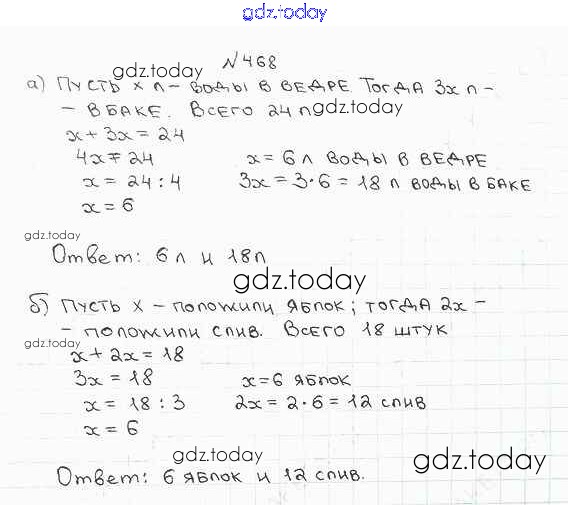 gdz.today
№468
gdz.today
а) Пусть x л - воды в ведре. Тогда 3x л -
- в баке. Всего 24 л gdz.today
x + 3x = 24
4x = 24 x = 6 л воды в ведре
x = 24 : 4 3x = 3·6 = 18 л воды в баке
x = 6
gdz.today
Ответ: 6 л и 18 л
gdz.today
б) Пусть x - положили яблок; тогда 2x -
- положили слив. Всего 18 штук
gdz.today
x + 2x = 18
3x = 18 x = 6 яблок
x = 18 : 3 2x = 2·6 = 12 слив
x = 6
gdz.today gdz.today
Ответ: 6 яблок и 12 слив.